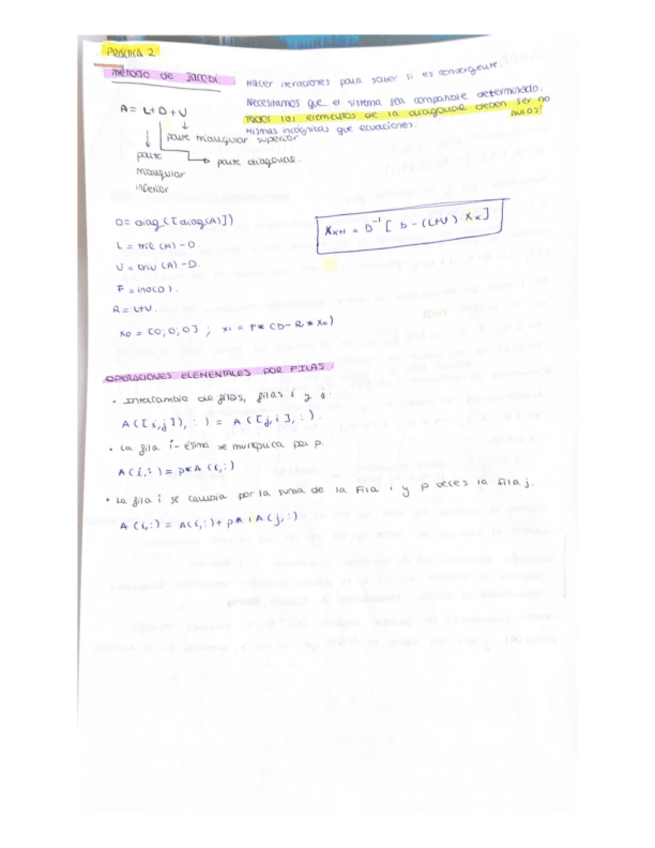 PRÁCTICA 2
Método de Jacobi. Hacer iteraciones para saber si es convergente.
Necesitamos que el sistema sea compatible determinado.
Todos los elementos de la diagonal deben ser no nulos!
mismas incógnitas que ecuaciones.
A = L+D+U
parte triangular superior
parte diagonal.
parte
triangular
inferior
D = diag([diag(A)])
L = tril(A) - D.
U = triu(A) - D.
F = inv(D).
R = L+U.
X0 = [0;0;0] ; X1 = F*(b-R*X0)
XK+1 = D⁻¹ [b - (L+U) · XK]
OPERACIONES ELEMENTALES POR FILAS.
• Intercambio de filas, filas i y j.
A([i,j],:) = A([j,i],:).
• La fila i-ésima se multiplica por p.
A(i,:) = p*A(i,:)
• La fila i se cambia por la suma de la fila i y p veces la fila j.
A(i,:) = A(i,:)+p* A(j,:)